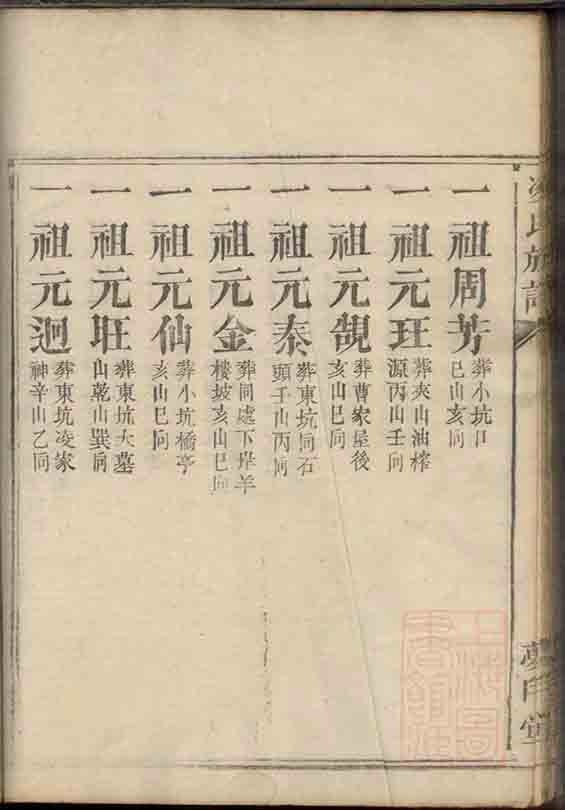 一祖周芳 葬小坑口巳山亥向
一祖元玨 葬夾山油榨源丙山壬向
一祖元覩 葬曹家屋後亥山巳向
一祖元泰 葬東坑同石頭子山丙向
一祖元金 葬同處下垾羊棲坡亥山巳向
一祖元仙 葬小坑橋亭亥山巳向
一祖元旺 葬東坑大墓山乾山巽向
一祖元迥 葬東坑凌家神辛山乙向
氏族譜
堂